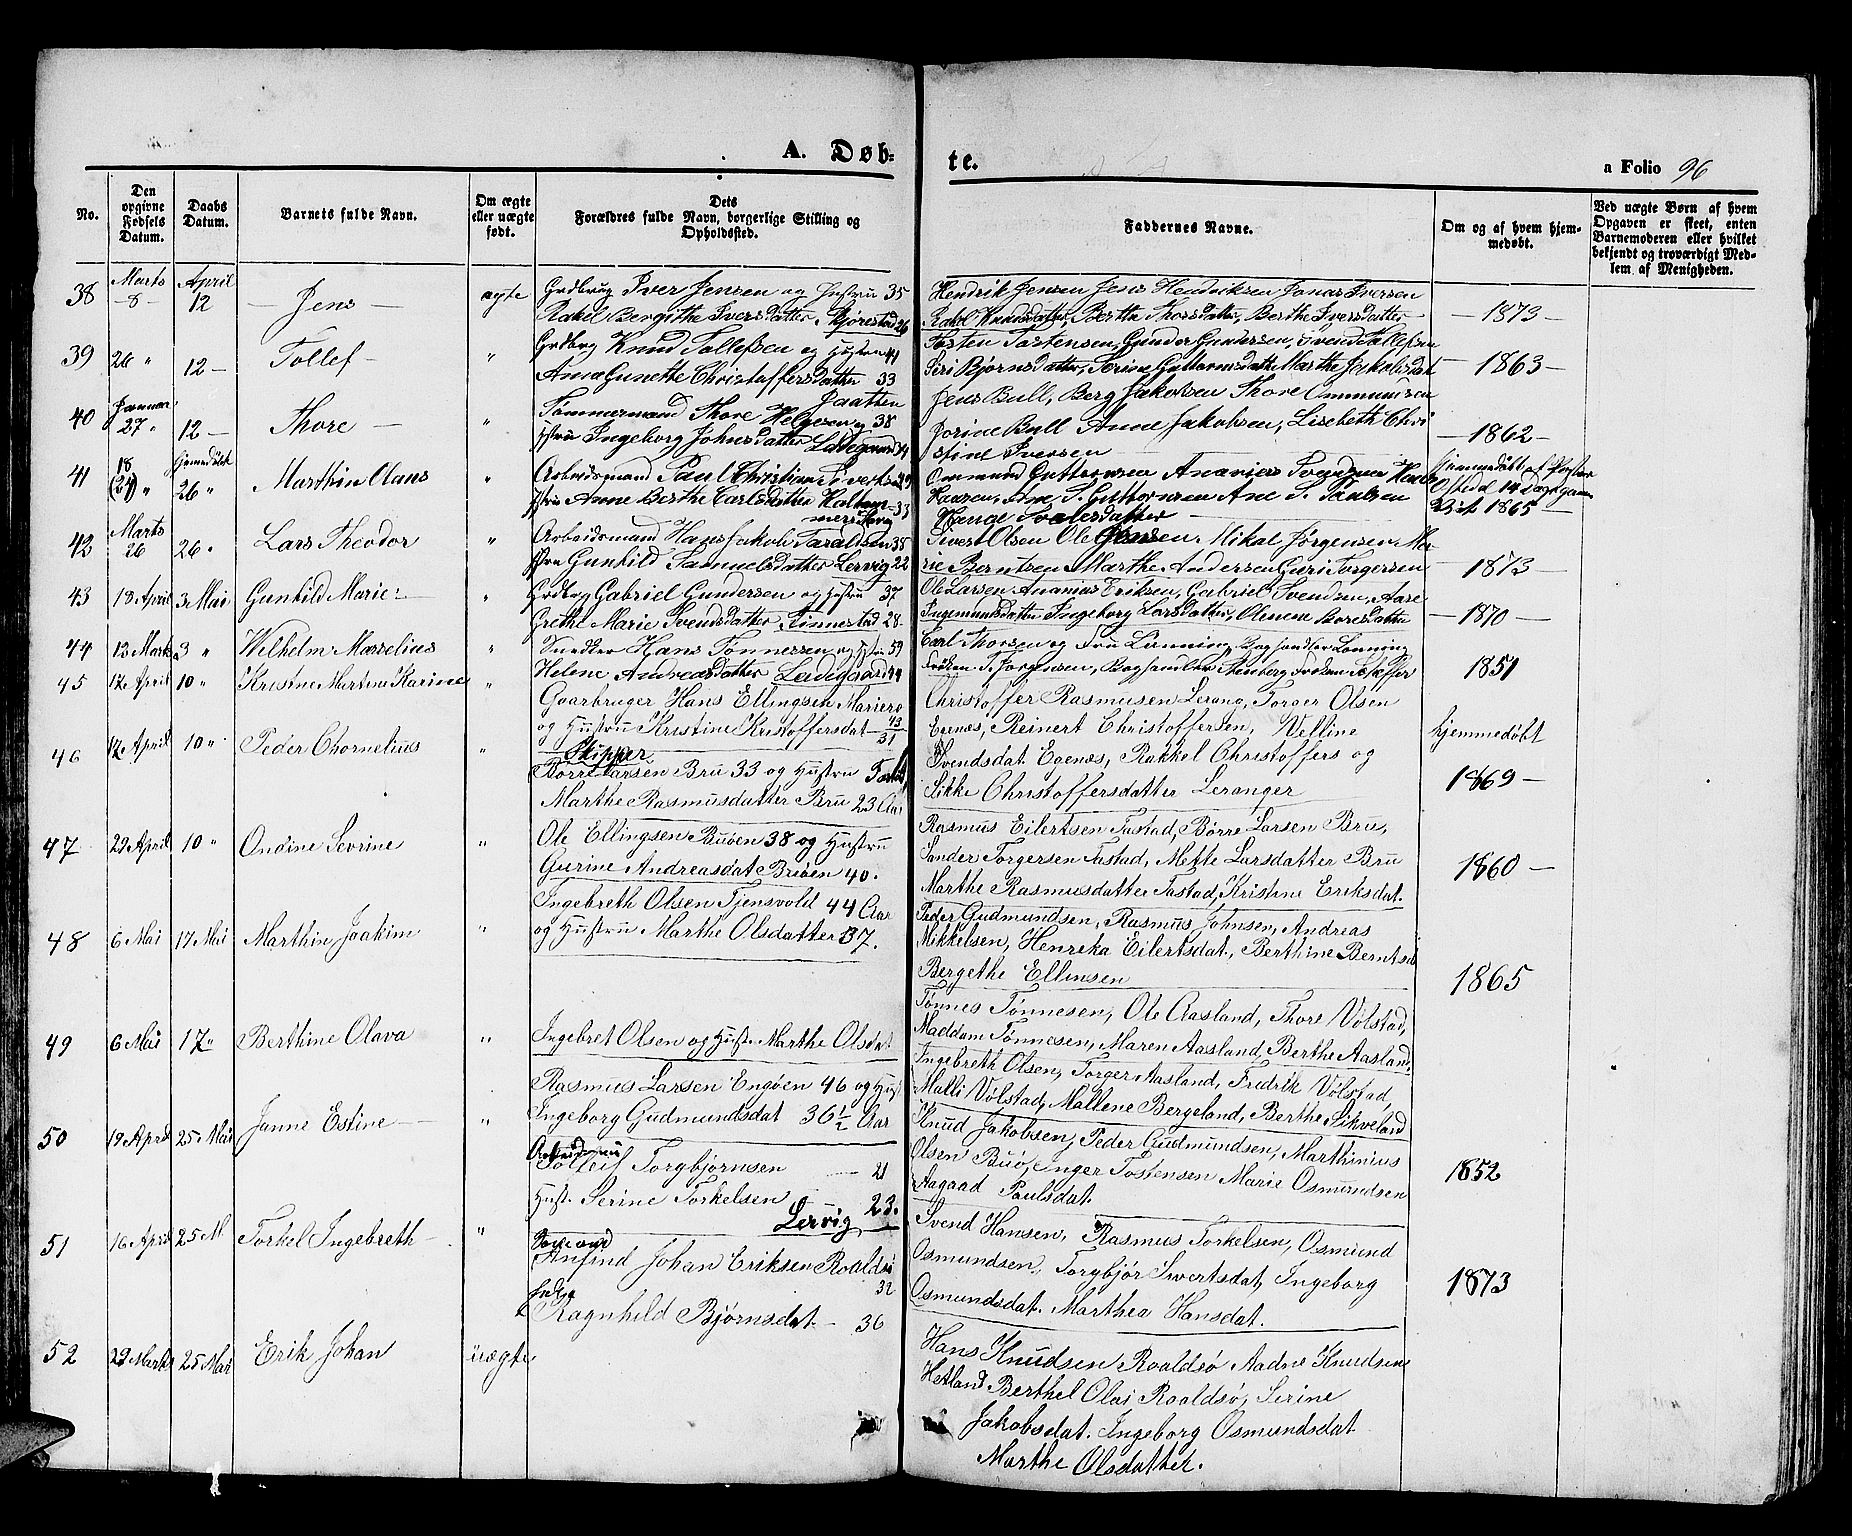 A. Døb-
te.
a Folio 96
No.
Den opgivne Fødsels Datum.
Daabs Datum.
Barnets fulde Navn.
Om ægte eller uægte født.
Dets Forældres fulde Navn, borgerlige Stilling og Opholdssted.
Faddernes Navne.
Om og af hvem hjemmedøbt.
Ved uægte Børn af hvem Opgaven er skeet, enten Barnemoderen eller hvilket bekjendt og troværdigt Medlem af Menigheden.
38 Marts 8 April 12 Jens ægte
Iver Jensen og Hustru 35
Rakel Bergithe Iversdatter 26
Hendrik Jensen Jens Hendriksen Jonas Iversen
Rakel Knudsdatter, Berthe Thorsdatter, Berthe Iversdatter
1873
39 26 " 12 Tollef "
Knud Tollefsen og Hustru 41
Ane Gunette Christoffersdatter 33
Tosten Tostensen, Gunder Gundersen, Svend Tollefsen
Siri Bjørnsdatter, Serine Guttormsdatter Marthe Jakobsdat
1863
40 Januar 27 " 12 Thore "
Jaatten
Tømmermand Thore Helgesen og 38
Ingeborg Johnsdatter Ladegaard
Jens Bull, Berg Jakobsen Thore Ommundsen
Jorine Bull Anne Jakobsen, Lisebeth Chri
stine Iversen
1862
41 18 (24) " hjemmedøbt 26 " Marthin Olaus "
Arbeidsmand Paul Christian Sivertsen
Anne Berthe Carlsdatter 33
Ommund Guttormsen Ananias Svendsen
Hansen, Ane S. Guttormsen Ane T. Paulsen
hjemmedøbt af
14 Dage gammel
1865
42 Marts 26 26 " Lars Theodor "
Arbeidsmand Hans Jakob Taraldsen 38
Gunhild Samuelsdatter Lervig 22
Sivert Olsen Ole Hansen Mikal Jørgensen Ma-
rie Berntsen Marthe Andersen Guri Torgersen
1873
43 18 April 3 Mai Gunhild Marie "
Gabriel Gundersen og Hustru 37
Grethe Marie Svendsdatter Finnestad 28
Ole Larsen Ananias Eriksen, Gabriel Svendsen, Aase
Ingemundsdatter Ingeborg Larsdatter, Olene Thoresdatter
1870
44 13 Marts 3 " Wilhelm Marselius "
Hans Tønnessen og Hustru 59
Helene Andreasdatter Ladegaard 44
Carl Thorsen og Fru Lønning, Lønning
Frøken T. Jørgensen, Stenberg Frøken Schiøffer
1851
45 12 April 10 " Kristne Martine Karine "
Gaarbruger Hans Ellingsen Mariero 43
og Hustru Kristine Kristoffersdat 31
Christoffer Rasmusen Lerang, Torger Olsen
Egenes, Reinert Christoffersen, Velline
Svendsdat Egenes, Rakkel Christoffers og
Sikke Christoffersdatter Leranger
hjemmedøbt
1869
46 12 April 10 " Peder Chornelius "
Skipper
Børre Larsen Bru 33 og Hustru
Marthe Rasmusdatter Bru 23 Aar
Rasmus Eilertsen Tastad, Børre Larsen Bru,
Sander Torgersen Tastad, Mette Larsdatter Bru
Marthe Rasmusdatter Tastad, Kristine Eriksdat.
1860
47 22 April 10 " Ondine Severine "
Ole Ellingsen Buøen 38 og Hustru
Gurine Andreasdat Buøen 40.
Peder Gudmundsen, Rasmus Johnsen, Andreas
Mikkelsen, Henreka Eilertsdat., Berthine Berntsd
Bergethe Ellinsen
1865
48 6 Mai 17 Mai Marthin Joakim "
Ingebreth Olsen Tjensvold 44 Aar
og Hustru Marthe Olsdatter 37.
Tønnes Tønnesen, Ole Aasland, Thore Vølstad,
Maddam Tønnesen, Maren Aasland, Berthe Aasland,
49 6 Mai 17 " Berthine Olava "
Ingebret Olsen og Hust. Marthe Olsdat
Ingebreth Olsen, Torger Aasland, Fredrik Vølstad,
Malli Vølstad, Mallene Bergeland, Berthe Sikveland
50 19 April 25 Mai Janne Estine "
Rasmus Larsen Engøen 46 og Hust
Ingeborg Gudmundsdat 36 1/2 Aar
Knud Jakobsen, Peder Gudmundsen, Marthinius
Olsen Buø, Inger Tostensen Marie Osmundsen
Aagaad Paulsdat.
1852
51 16 April 25 M Torkel Ingebreth "
Tolleif Torgbjørnsen 21
Hust. Serine Torkelsen 23.
Lervig
Svend Hansen, Rasmus Torkelsen, Osmund
Osmundsen, Torgbjør Sivertsdat, Ingeborg
Osmundsdat. Marthea Hansdat.
1873
52 22 Marts 25 Mai Erik Johan uægte
Anfind Johan Eriksen Roaldsø 32
Ragnhild Bjørnsdat 36
Hans Knudsen Roaldsø Aadne Knudsen
Hetland Berthel Olai Roaldsø, Serine
Jakobsdat. Ingeborg Osmundsdat
Marthe Olsdatter.